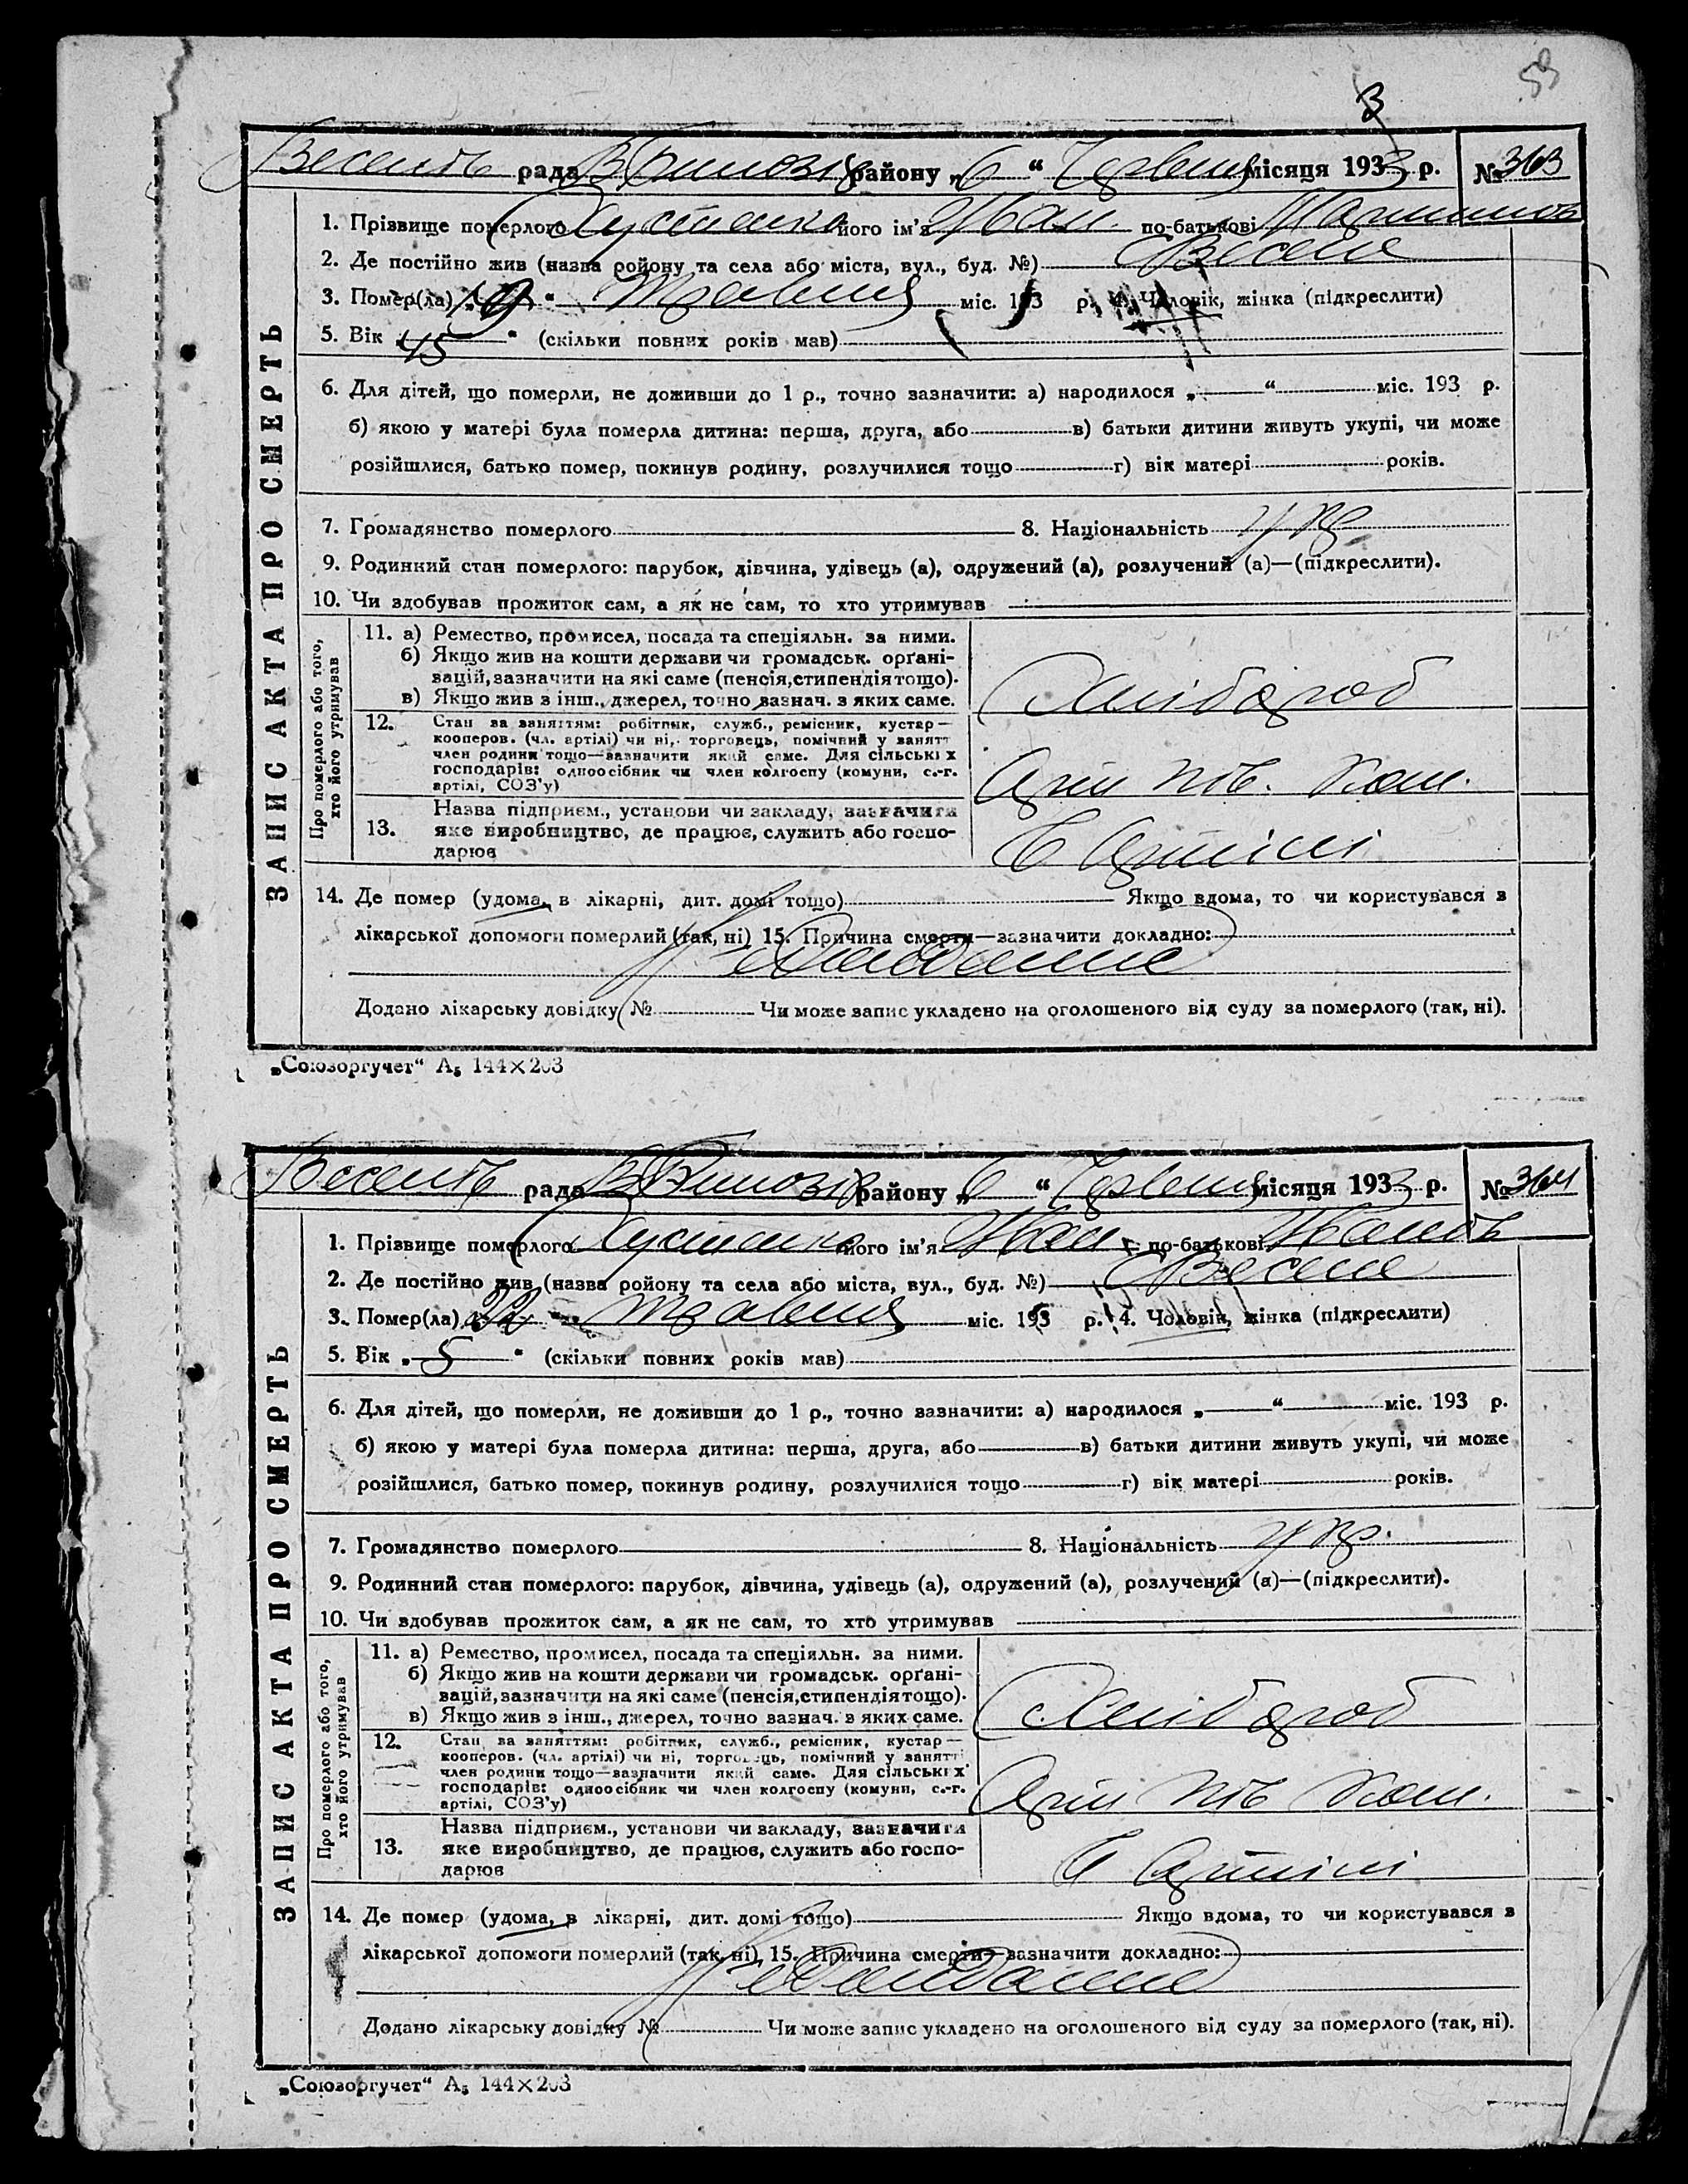 59
3
Веселів рада районy „6 “ Червня місяця 1933 р. № 363
1. Прізвище померлого його ім'я Іван по-батькові
2. Де постійно жив (назва ройону та села або міста, вул., буд. №) с Веселе
3. Помер(ла) „19“ Травня міс. 193 р. 4. Чоловік, жінка (підкреслити)
5. Вік 45 “ (скільки повних років мав)
6. Для дітей, що померли, не доживши до 1 р., точно зазначити: а) народилося „ “ міс. 193 р.
б) якою у матері була померла дитина: перша, друга, або в) батьки дитини живуть укупі, чи може
розійшлися, батько помер, покинув родину, розлучилися тощо г) вік матері років.
7. Громадянство померлого 8. Національність укр
9. Родинний стан померлого: парубок, дівчина, удівець (а), одружений (а), розлучений (а)—(підкреслити).
10. Чи здобував прожиток сам, а як не сам, то хто утримував
ЗАПИС АКТА ПРО СМЕРТЬ
Про померлого або того,
хто його утримував
11. а) Ремество, промисел, посада та спеціяльн. за ними.
б) Якщо жив на кошти держави чи громадськ. органі-
зацій, зазначити на які саме (пенсія, стипендія тощо).
в) Якщо жив з інш., джерел, точно зазнач. з яких саме.
Хлібороб
12. Стан за заняттям: робітник, служб., ремісник, кустар—
кооперов. (чл. артілі) чи ні, торговець, помічний у занятт
член родини тощо—зазначити який саме. Для сільськіх
господарів: одноосібник чи член колгоспу (комуни, с.-г.
артілі, СОЗ'у)
13. Назва підприєм., установи чи закладу, зазначити
яке виробництво, де працює, служить або госпо-
дарює
в Артілі
14. Де помер (удома, в лікарні, дит. домі тощо) Якщо вдома, то чи користувався з
лікарської допомоги померлий (так, ні) 15. Причина смерти—зазначити докладно:
Додано лікарську довідку № Чи може запис укладено на оголошеного від суду за померлого (так, ні).
„Союзоргучет“ А₅ 144×203
Веселів рада району „6 “ Червня місяця 1933 р. № 364
1. Прізвище померлого його ім'я Іван по-батькові Іванов
2. Де постійно жив (назва ройону та села або міста, вул., буд. №) с Веселе
3. Помер(ла) „22“ Травня міс. 193 р. 4. Чоловік, жінка (підкреслити)
5. Вік „5 “ (скільки повних років мав)
6. Для дітей, що померли, не доживши до 1 р., точно зазначити: а) народилося „ “ міс. 193 р.
б) якою у матері була померла дитина: перша, друга, або в) батьки дитини живуть укупі, чи може
розійшлися, батько помер, покинув родину, розлучилися тощо г) вік матері років.
7. Громадянство померлого 8. Національність укр.
9. Родинний стан померлого: парубок, дівчина, удівець (а), одружений (а), розлучений (а)—(підкреслити).
10. Чи здобував прожиток сам, а як не сам, то хто утримував
ЗАПИС АКТА ПРО СМЕРТЬ
Про померлого або того,
хто його утримував
11. а) Ремество, промисел, посада та спеціяльн. за ними.
б) Якщо жив на кошти держави чи громадськ. органі-
зацій, зазначити на які саме (пенсія, стипендія тощо).
в) Якщо жив з інш., джерел, точно зазнач. з яких саме.
Хлібороб
12. Стан за заняттям: робітник, служб., ремісник, кустар—
кооперов. (чл. артілі) чи ні, торговець, помічний у занятті
член родини тощо—зазначити який саме. Для сільськіх
господарів: одноосібник чи член колгоспу (комуни, с.-г.
артілі, СОЗ'у)
13. Назва підприєм., установи чи закладу, зазначити
яке виробництво, де працює, служить або госпо-
дарює
в Артілі
14. Де помер (удома, в лікарні, дит. домі тощо) Якщо вдома, то чи користувався з
лікарської допомоги померлий (так, ні) 15. Причина смерти—зазначити докладно:
Додано лікарську довідку № Чи може запис укладено на оголошеного від суду за померлого (так, ні).
„Союзоргучет“ А₅ 144×203